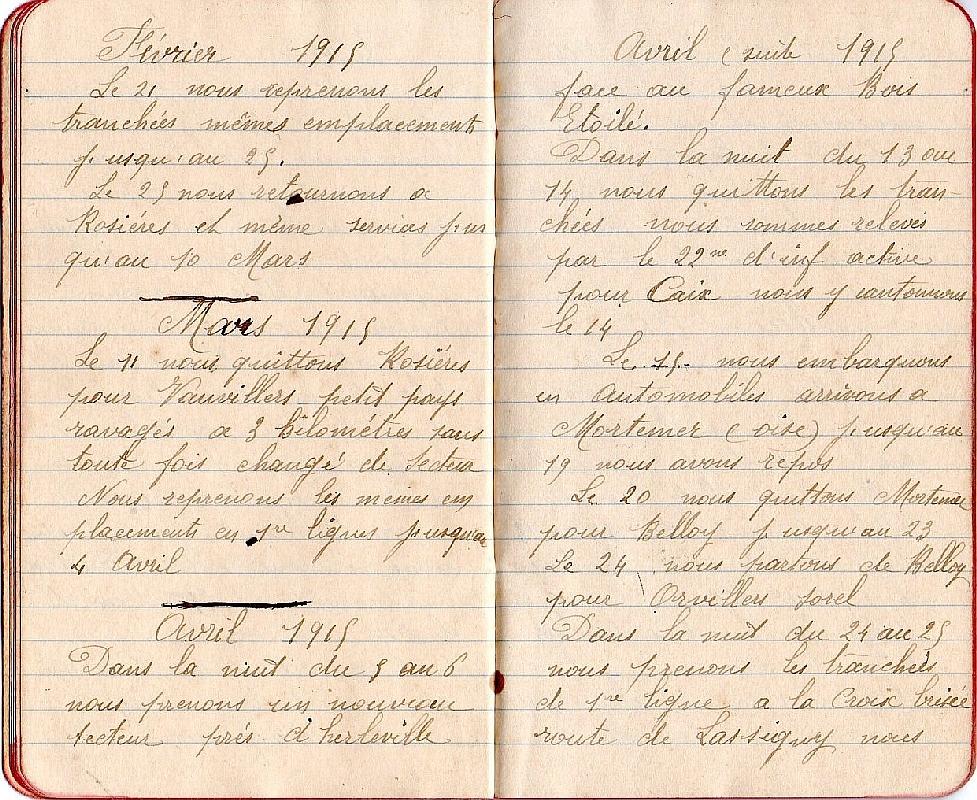 Février 1915
Le 21 nous reprenons les
tranchées mêmes emplacements
jusqu'au 25.
Le 25 nous retournons a
Rosiéres et même services jus
qu'au 10 Mars
Mars 1915
Le 11 nous quittons Rosiéres
pour Vauvillers petit pays
ravagés a 3 kilométres sans
toute fois changé de secteur
Nous reprenons les memes em
placements en 1re lignes jusqu'au
4 Avril
Avril 1915
Dans la nuit du 5 au 6
nous prenons un nouveau
secteur prés d'herleville
Avril (suite 1915
face au fameux Bois
Etoilé.
Dans la nuit du 13 au
14 nous quittons les tran-
chées nous sommes relevés
par le 22me d'inf active
pour Caix nous y cantonnons
le 14
Le 15. nous embarquons
en automobiles arrivons a
Mortemer (oise) jusqu'au
19 nous avons repos
Le 20 nous quittons Mortemer
pour Belloy jusqu'au 23
Le 24 nous partons de Belloy
pour Orvillers sorel
Dans la nuit du 24 au 25
nous prenons les tranchées
de 1re ligne a la Croix brisée
route de Lassigny nous